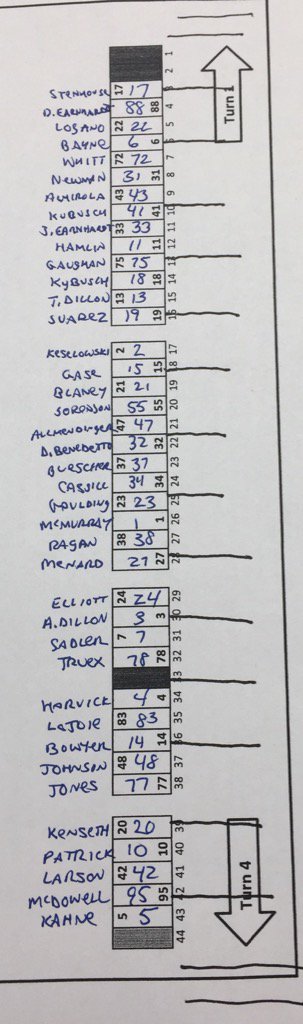 1
2
STENHOUSE 17 17 3
D. EARNHARDT 88 88 4
LOGANO 22 22 5
BAYNE 6 6 6
WHITT 72 72 7
NEWMAN 31 31 8
ALMIROLA 43 43 9
KUBUSCH 41 41 10
J. EARNHARDT 33 33 11
HAMLIN 11 11 12
GAUGHAN 75 75 13
KYBUSCH 18 18 14
T. DILLON 13 13 15
SUAREZ 19 19 16
Turn 1
KESELOWSKI 2 2 17
GASE 15 15 18
BLANEY 21 21 19
SORENSON 55 55 20
ALLMENDINGER 47 47 21
D. BENEDETTO 32 32 22
BUESCHER 37 37 23
CASSILL 34 34 24
GAULDING 23 23 25
MCMURRAY 1 1 26
RAGAN 38 38 27
MENARD 27 27 28
ELLIOTT 24 24 29
A. DILLON 3 3 30
SADLER 7 7 31
TRUEX 78 78 32
33
HARVICK 4 4 34
LAJOIE 83 83 35
BOWYER 14 14 36
JOHNSON 48 48 37
JONES 77 77 38
KENSETH 20 20 39
PATRICK 10 10 40
LARSON 42 42 41
MCDOWELL 95 95 42
KAHNE 5 5 43
44
Turn 4